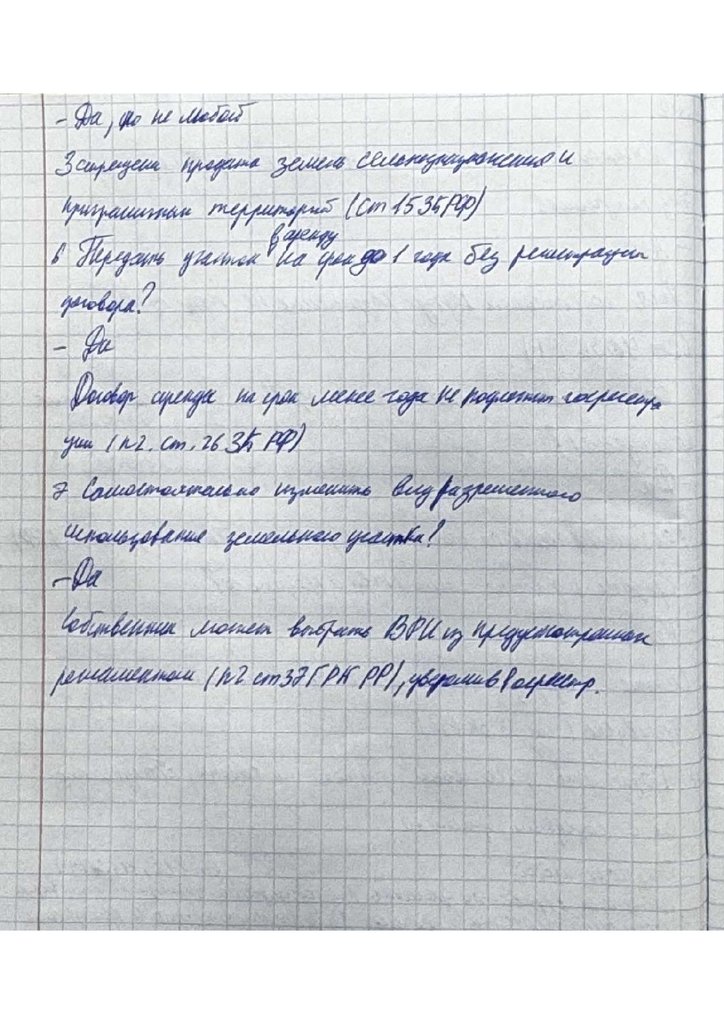 - Да, но не любой
Запрещена продажа земель сельхозназначения и
приграничных территорий (ст 15 ЗК РФ)
в аренду
6 Передать участок на срок до 1 года без регистрации
договора?
- Да
Договор аренды на срок менее года не подлежит госрегистра
ции (п2. ст. 26 ЗК РФ)
7 Самостоятельно изменить вид разрешенного
использования земельного участка?
- Да
Собственник может выбрать ВРИ из предусмотренных
регламентом (п2 ст 37 ГРК РФ), уведомив Росреестр.